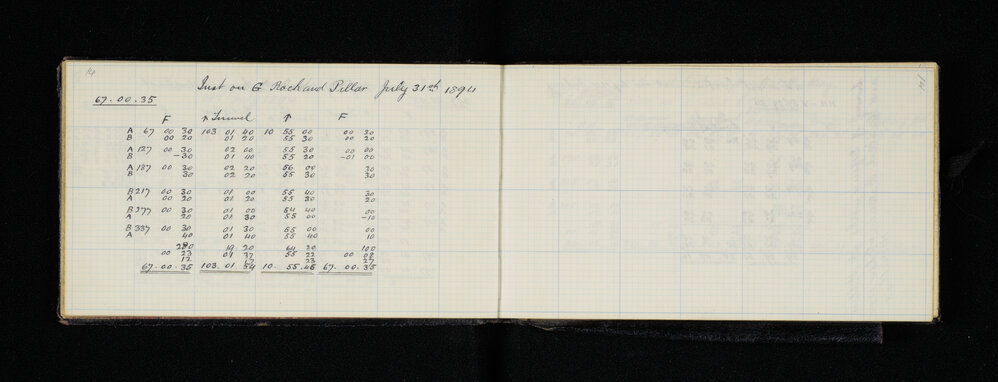 14
Inst on G Rock and Pillar July 31st 1894
67.00.35
F ↑ Tunnel ↑ F
A 67 00 30 103 01 40 10 55 00 00 20
B 00 20 01 20 55 30 00 20
A 127 00 30 02 00 55 30 00 00
B -30 01 40 55 20 -01 00
A 187 00 30 02 20 56 00 30
B 30 02 20 55 30 30
B 217 00 30 01 00 55 40 30
A 00 20 01 20 55 30 20
B 277 00 30 01 00 54 40 00
A 20 01 30 55 00 -10
B 337 00 30 01 30 55 00 00
A 40 01 40 55 40 10
280 19 20 64 20 100
00 23 01 37 55 22 00 08
12 17 23 27
67.00.35 103.01.54 10.55.45 67.00.35